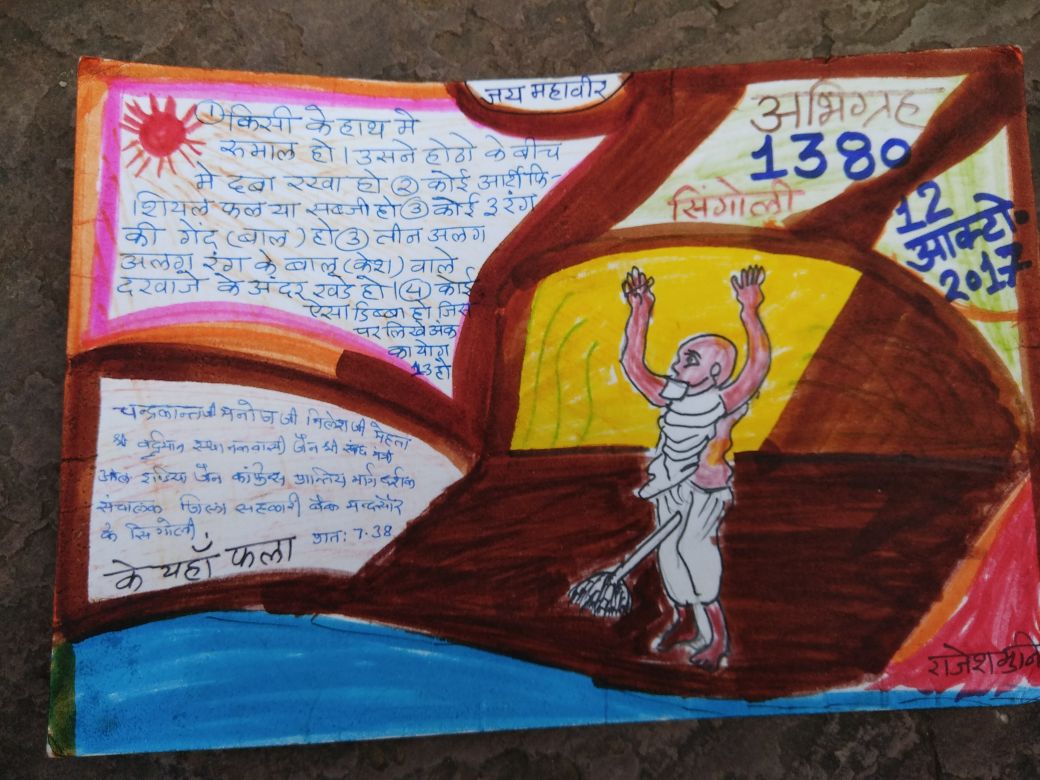 जय महावीर
① किसी के हाथ मे
रूमाल हो। उसने होठो के बीच
मे दबा रखा हो ② कोई आर्टीफि-
शियल फल या सब्जी हो ③ कोई 3 रंग
की गेंद (बाल) हो ③ तीन अलग
अलग रंग के बाल (केश) वाले
दरवाजे के अंदर खडे हो। ④ कोई
ऐसा डिब्बा हो जिस
पर लिखे अंक
का योग
13 हो
अभिग्रह
1380
सिंगोली
12
आक्टो.
2017
चन्द्रकान्तजी मनोज जी निलेश जी मेहता
श्री वर्द्धमान स्थानकवासी जैन श्री संघ
इंडिया जैन कांफ्रेन्स प्रान्तिय मार्ग दर्शक
संचालक जिला सहकारी बैंक मन्दसौर
के सिंगोली
प्रात: 7.38
के यहाँ फला
राजेश मुनि